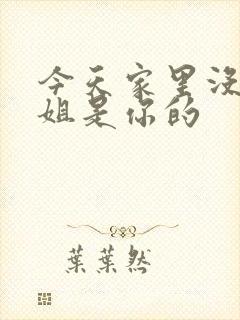 今天家里没
姐是你的
葉葉然